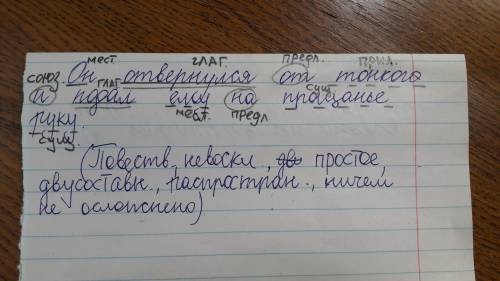 мест. глаг. предл. прил.
Он отвернулся от тонкого
союз. глаг. сущ.
и подал ему на прощанье
мест. предл.
руку.
сущ.
(Повеств, невоскл, дв простое,
двусоставн., распростран., ничем
не осложнено)